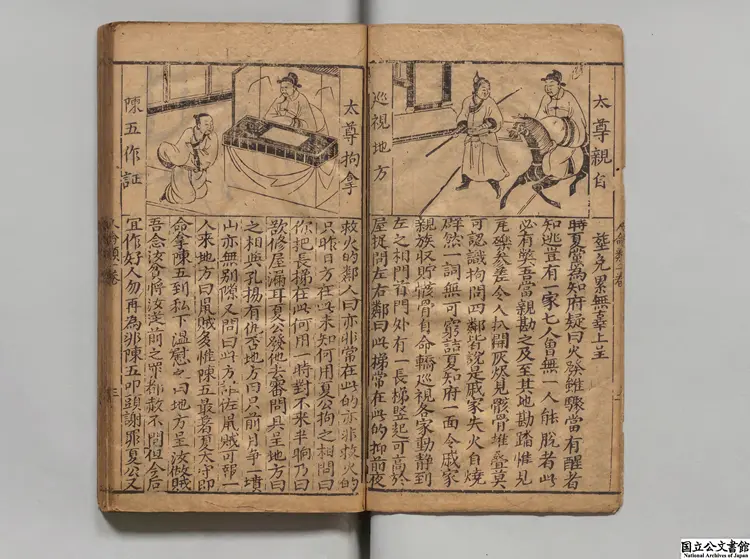 太尊親自
巡視地方
免累無辜上呈
時夏黨為知府疑曰火發雖驟當有醒者
知逃豈有一家七人曾無一人能脫者此
必有獘吾當親勘之及至其地勘踏惟見
礫矣差令人扒開灰燼見骸骨堆疊莫
可認識拘問四鄰皆說是戚家失火自燒
然一詞無可窮詰夏知府一面令戚家
親族収貯骸骨自命轎巡視各家動靜到
左之相門首門外有一長梯竪起可高於
屋捉問左右鄰曰此梯常在此的抑前夜
太尊拘拿
陳五作証
救火的鄰人曰亦非常在此的亦非救火的
只昨日方在此未知何用夏公拘之相問曰
你把長梯在此何用一時對不来半晌乃曰
欲修屋漏耳夏公發他去審問具呈地方曰
之相與孔揚有仇否地方曰只前月爭一墳
山亦無別隙又問曰此方鼠賊可報一
人来地方曰鼠賊多惟陳五最著夏太守即
命拿陳五到私下溫慰之曰地方呈汝做賊
吾念汝貧將汝前之罪都赦不問但今后
宜作好人勿再為非陳五叩頭謝罪夏公又
三
国立公文書館
National Archives of Japan